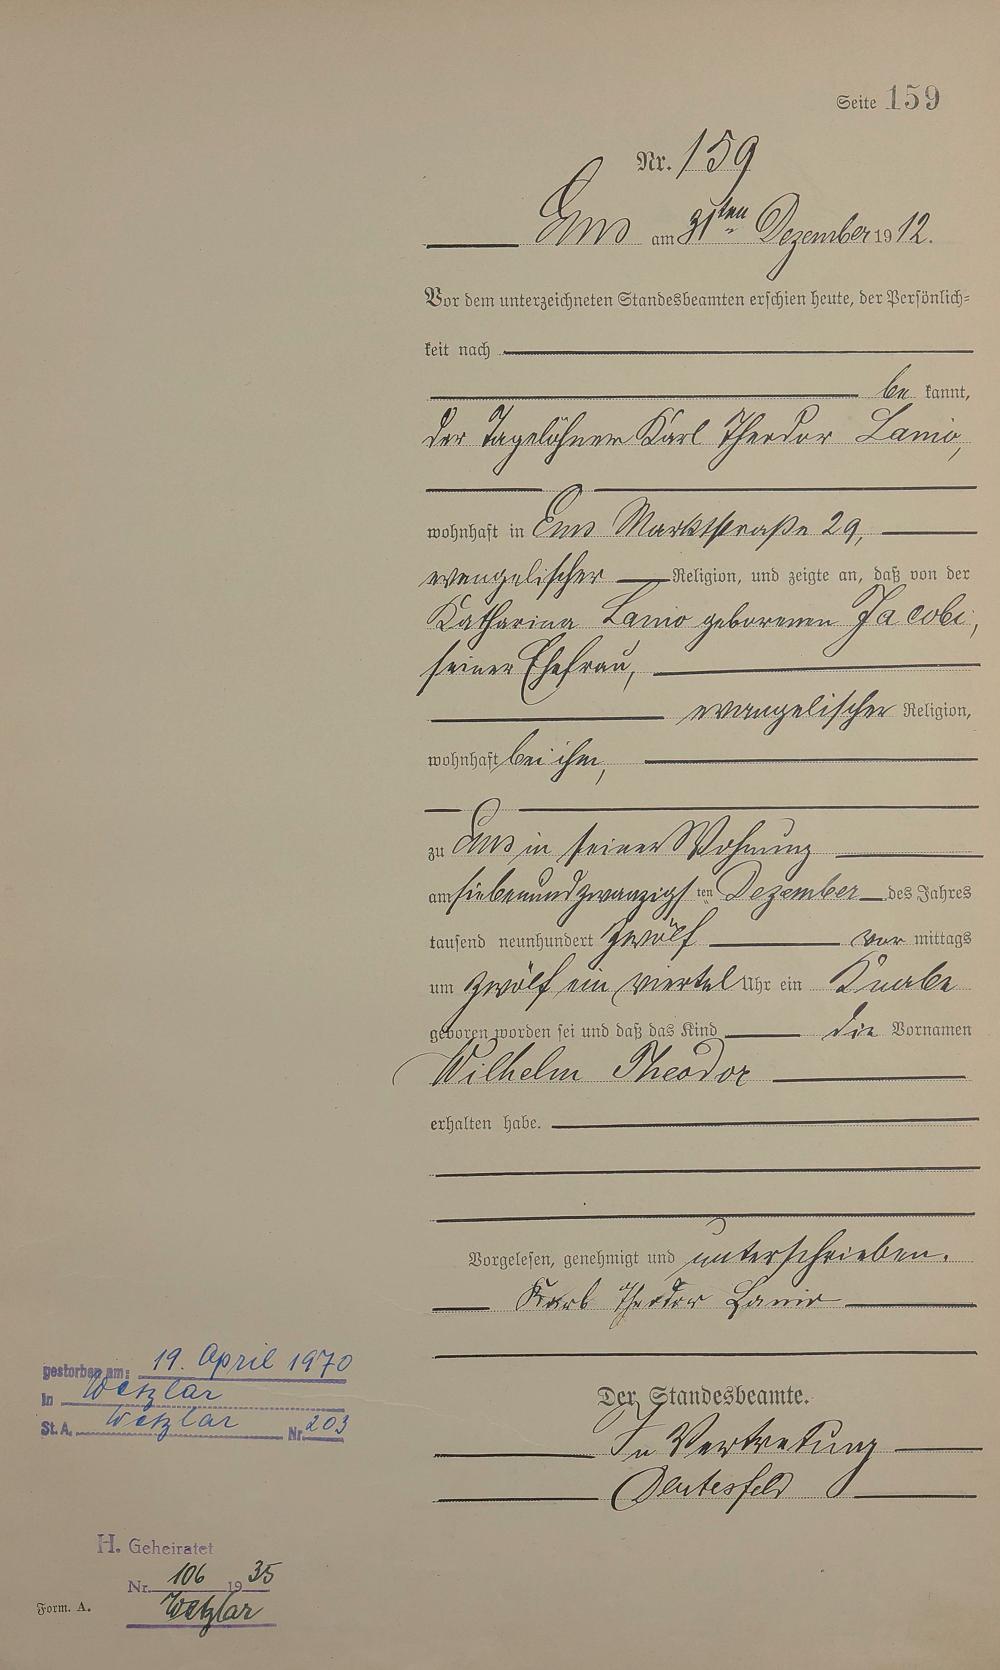 Seite 159
Nr. 159
Ems am 31ten Dezember 1912.
Vor dem unterzeichneten Standesbeamten erschien heute, der Persönlich-
keit nach
be kannt,
der Tagelöhner Karl Theodor Lanio,
wohnhaft in Ems Marktstraße 29,
evangelischer Religion, und zeigte an, daß von der
Katharina Lanio geborenen Jacobi,
seiner Ehefrau,
evangelischer Religion,
wohnhaft bei ihm,
zu Ems in seiner Wohnung
am siebenundzwanzigsten Dezember des Jahres
tausend neunhundert zwölf vor mittags
um zwölf ein viertel Uhr ein Knabe
geboren worden sei und daß das Kind die Vornamen
Wilhelm Theodor
erhalten habe.
Vorgelesen, genehmigt und unterschrieben.
Karl Theodor Lanio
Der Standesbeamte.
In Vertretung
gestorben am: 19. April 1970
in Wetzlar
St. A. Wetzlar Nr. 203
H. Geheiratet
Nr. 106 1935
Wetzlar
Form. A.